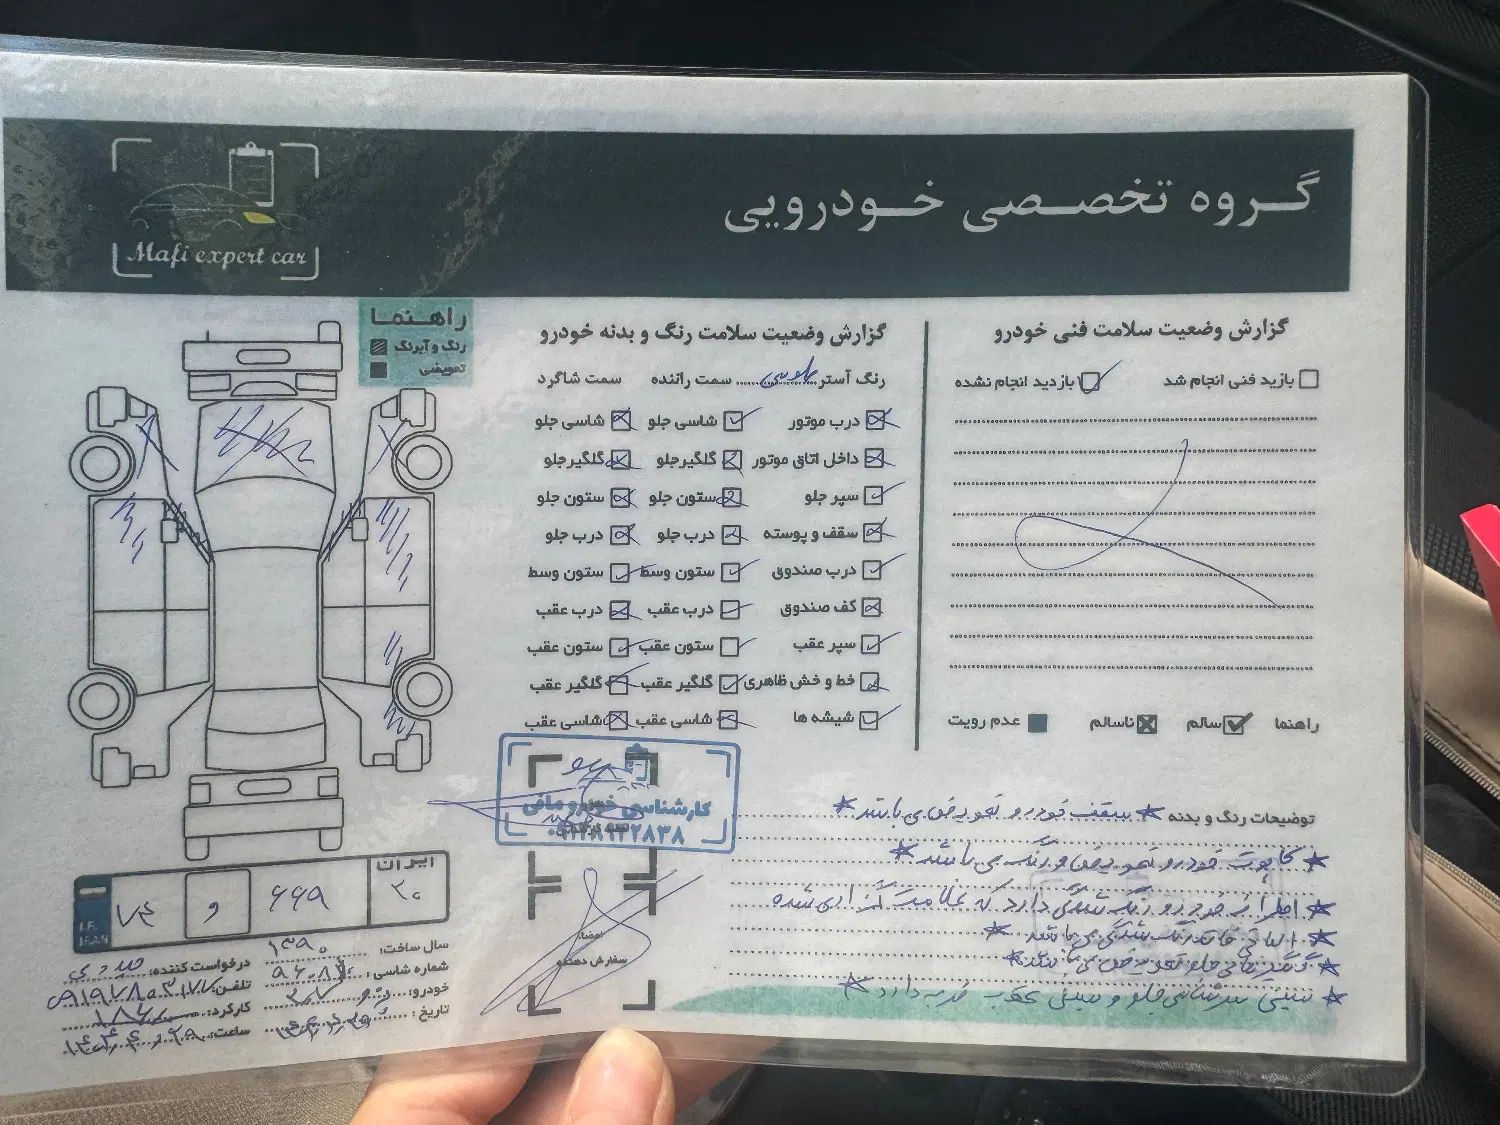 گروه تخصصی خودرویی
Mafi expert car
گزارش وضعیت سلامت فنی خودرو
بازید فنی انجام شد
بازدید انجام نشده
راهنما
سالم
ناسالم
عدم رویت
گزارش وضعیت سلامت رنگ و بدنه خودرو
رنگ آستر سمت راننده سمت شاگرد
درب موتور شاسی جلو شاسی جلو
داخل اتاق موتور گلگیرجلو گلگیرجلو
سپر جلو ستون جلو ستون جلو
سقف و پوسته درب جلو درب جلو
درب صندوق ستون وسط ستون وسط
کف صندوق درب عقب درب عقب
سپر عقب ستون عقب ستون عقب
خط و خش ظاهری گلگیر عقب گلگیر عقب
شیشه ها شاسی عقب شاسی عقب
راهنما
رنگ و آبرنگ
تعویضی
توضیحات رنگ و بدنه * سقف خودرو تعویض می باشد *
* کاپوت خودرو تعویض و رنگ می باشد *
* اطراف خودرو رنگ شدگی دارد که علامت گذاری شده
* رنگ شدگی می باشد *
* گلگیر های جلو تعویض می باشد *
* سینی سرشاسی جلو و سینی عقب ضربه دارد *
کارشناسی خودرو مافی
امضاء
سفارش دهنده
ایران
۳۰
۶۶۹
و
۷۴
I.R.
IRAN
سال ساخت: ۱۳۹۰
شماره شاسی:
خودرو:
تاریخ:
درخواست کننده:
تلفن:
کارکرد:
ساعت: